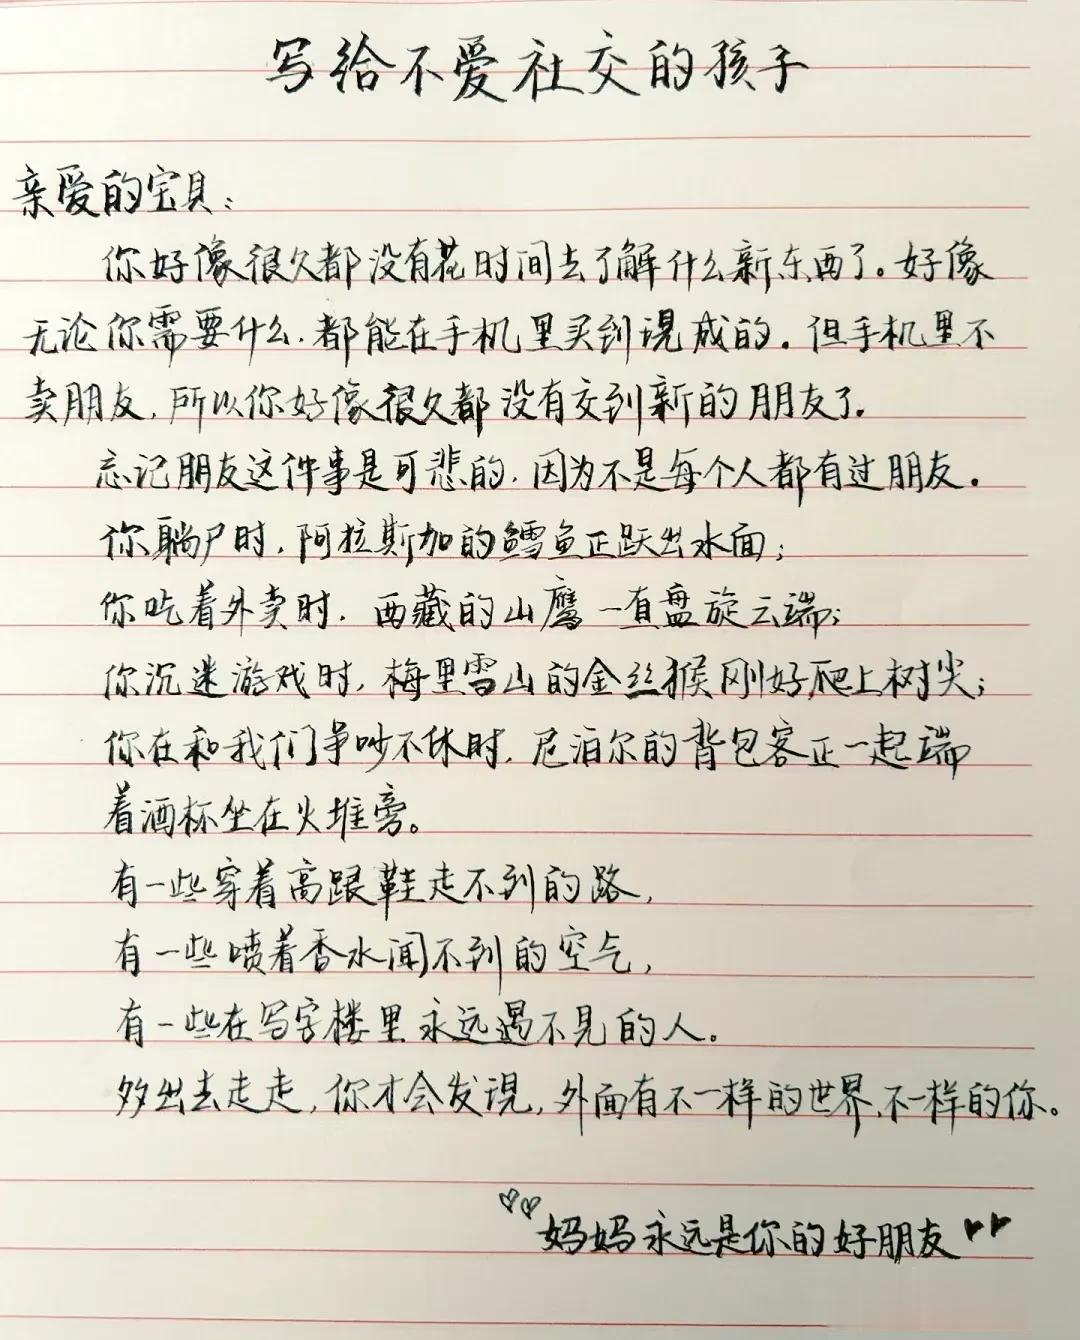 写给不爱社交的孩子
亲爱的宝贝：
你好像很久都没有花时间去了解什么新东西了。好像
无论你需要什么，都能在手机里买到现成的。但手机里不
卖朋友，所以你好像很久都没有交到新的朋友了。
忘记朋友这件事是可悲的，因为不是每个人都有过朋友。
你躺尸时，阿拉斯加的鳕鱼正跃出水面；
你吃着外卖时，西藏的山鹰一直盘旋云端；
你沉迷游戏时，梅里雪山的金丝猴刚好爬上树尖；
你在和我们争吵不休时，尼泊尔的背包客正一起端
着酒杯坐在火堆旁。
有一些穿着高跟鞋走不到的路，
有一些喷着香水闻不到的空气，
有一些在写字楼里永远遇不见的人。
多出去走走，你才会发现，外面有不一样的世界，不一样的你。
妈妈永远是你的好朋友